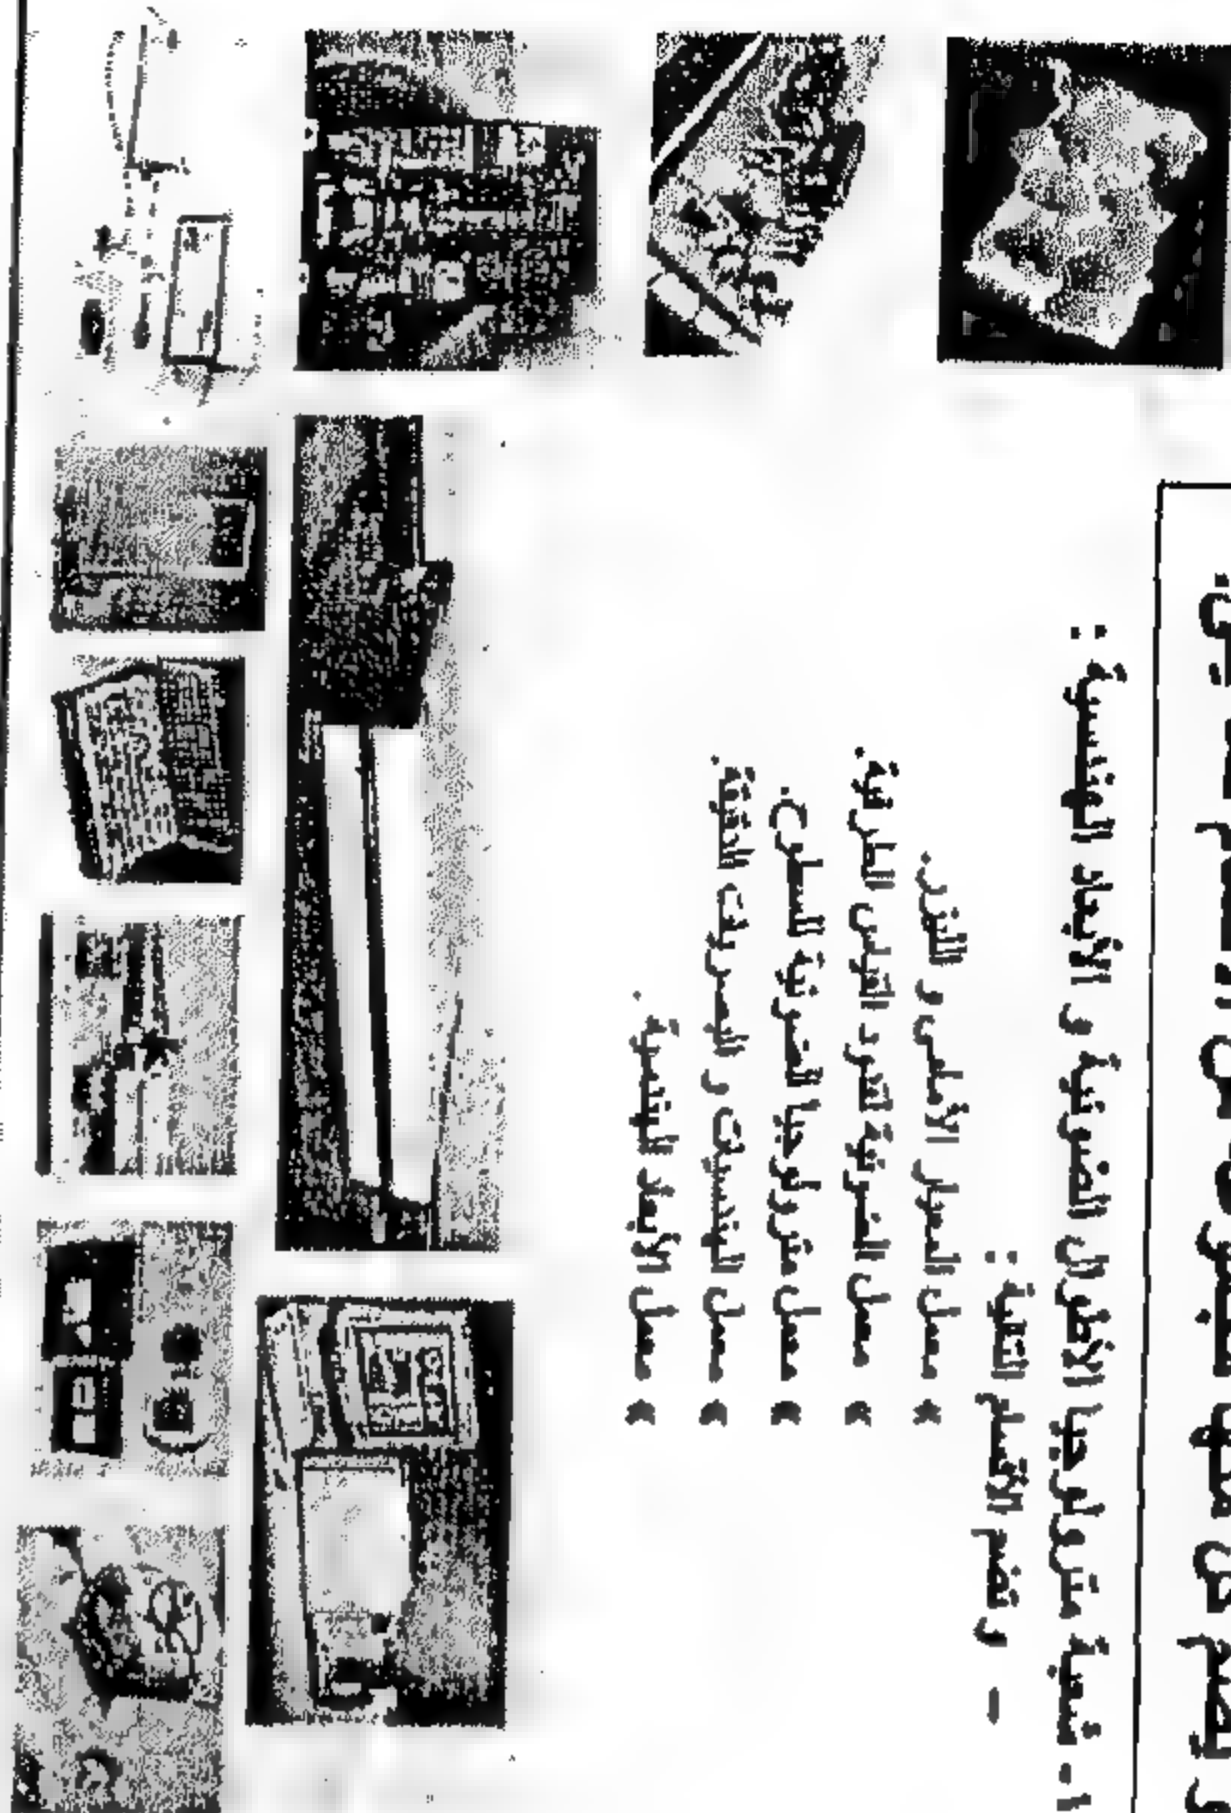 و يضم
١- شعبة مترولوجيا الأطوال الضوئية و الأبعاد الهندسية :
– و تضم الأقسام التالية :
» معمل المعيار الأملى و الليزر.
» معمل الضوئية لقدود القياس الطرفية.
» معمل مترولوجيا الضوئية للسطوح.
» معمل الهندسيات و البصريات الدقيقة.
» معمل الأبعاد الهندسية .